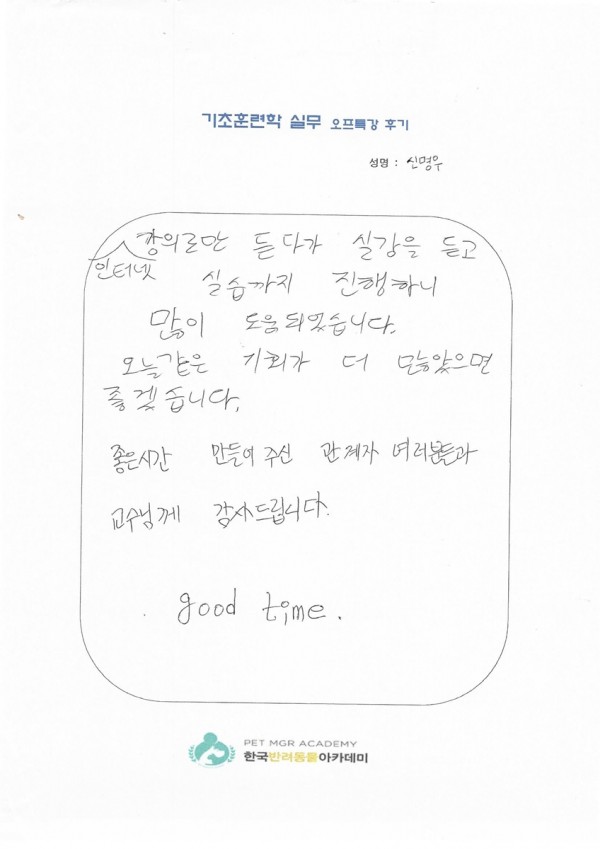 기초훈련학 실무 오프특강 후기
성명 : 신명우
인터넷 강의로만 듣다가 실감을 듣고
실습까지 진행하니
많이 도움되었습니다.
오늘같은 기회가 더 많았으면
좋겠습니다.
좋은시간 만들어 주신 관계자 여러분들과
교수님께 감사드립니다.
good time.
PET MGR ACADEMY
한국반려동물아카데미